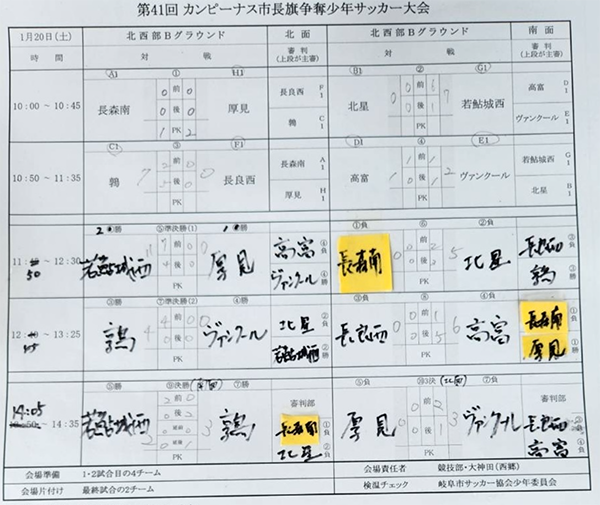 第41回 カンピーナス市長旗争奪少年サッカー大会
1月20日(土) 北西部Bグラウンド 北面 北西部Bグラウンド 南面
時間 対戦 審判(上段が主審) 対戦 審判(上段が主審)
A1 ① H1 B1 ② G1
10:00 ～ 10:45 長森南 0 前 0 厚見 長良西 F1 北星 0 前 若鮎城西 7 高富 D1
0 後 0 鶉 C1 0 後 ヴァンクール E1
1 PK 2 PK
C1 ③ F1 D1 ④ E1
10:50 ～ 11:35 鶉 7 前 0 長良西 長森南 A1 高富 1 1 前 1 ヴァンクール 2 若鮎城西 G1
後 0 厚見 H1 0 後 1 北星 B1
PK PK
2勝 ⑤準決勝(1) 1勝 ①負 ⑥ ②負
11:50 ～ 12:30 若鮎城西 11 7 前 0 0 厚見 高富 ④負 長森南 0 0 前 2 5 北星 長良西 ③負
4 後 0 ヴァンクール ④勝 0 後 鶉 ③勝
PK PK
③勝 ⑦準決勝(2) ④勝 ③負 ⑧ ④負
12:45 ～ 13:25 鶉 4 4 前 0 0 ヴァンクール 北星 ②負 長良西 0 0 前 1 6 高富 長森南 ①負
0 後 0 若鮎城西 ②勝 0 後 5 厚見 ①勝
PK PK
⑤勝 ⑨決勝(南面) ⑦勝 ⑤負 ⑩3決(北面) ⑦負
14:05 ～ 14:35 若鮎城西 2 前 0 鶉 3 審判部 厚見 0 0 前 2 3 ヴァンクール 審判部
0 後 2 長森南 ①負 0 後 1 長良西 ③負
延前 北星 ②負 PK 高富 ④負
PK
会場準備 1・2試合目の4チーム 会場責任者 競技部・大神田(西郷)
会場片付け 最終試合の2チーム 検温チェック 岐阜市サッカー協会少年委員会